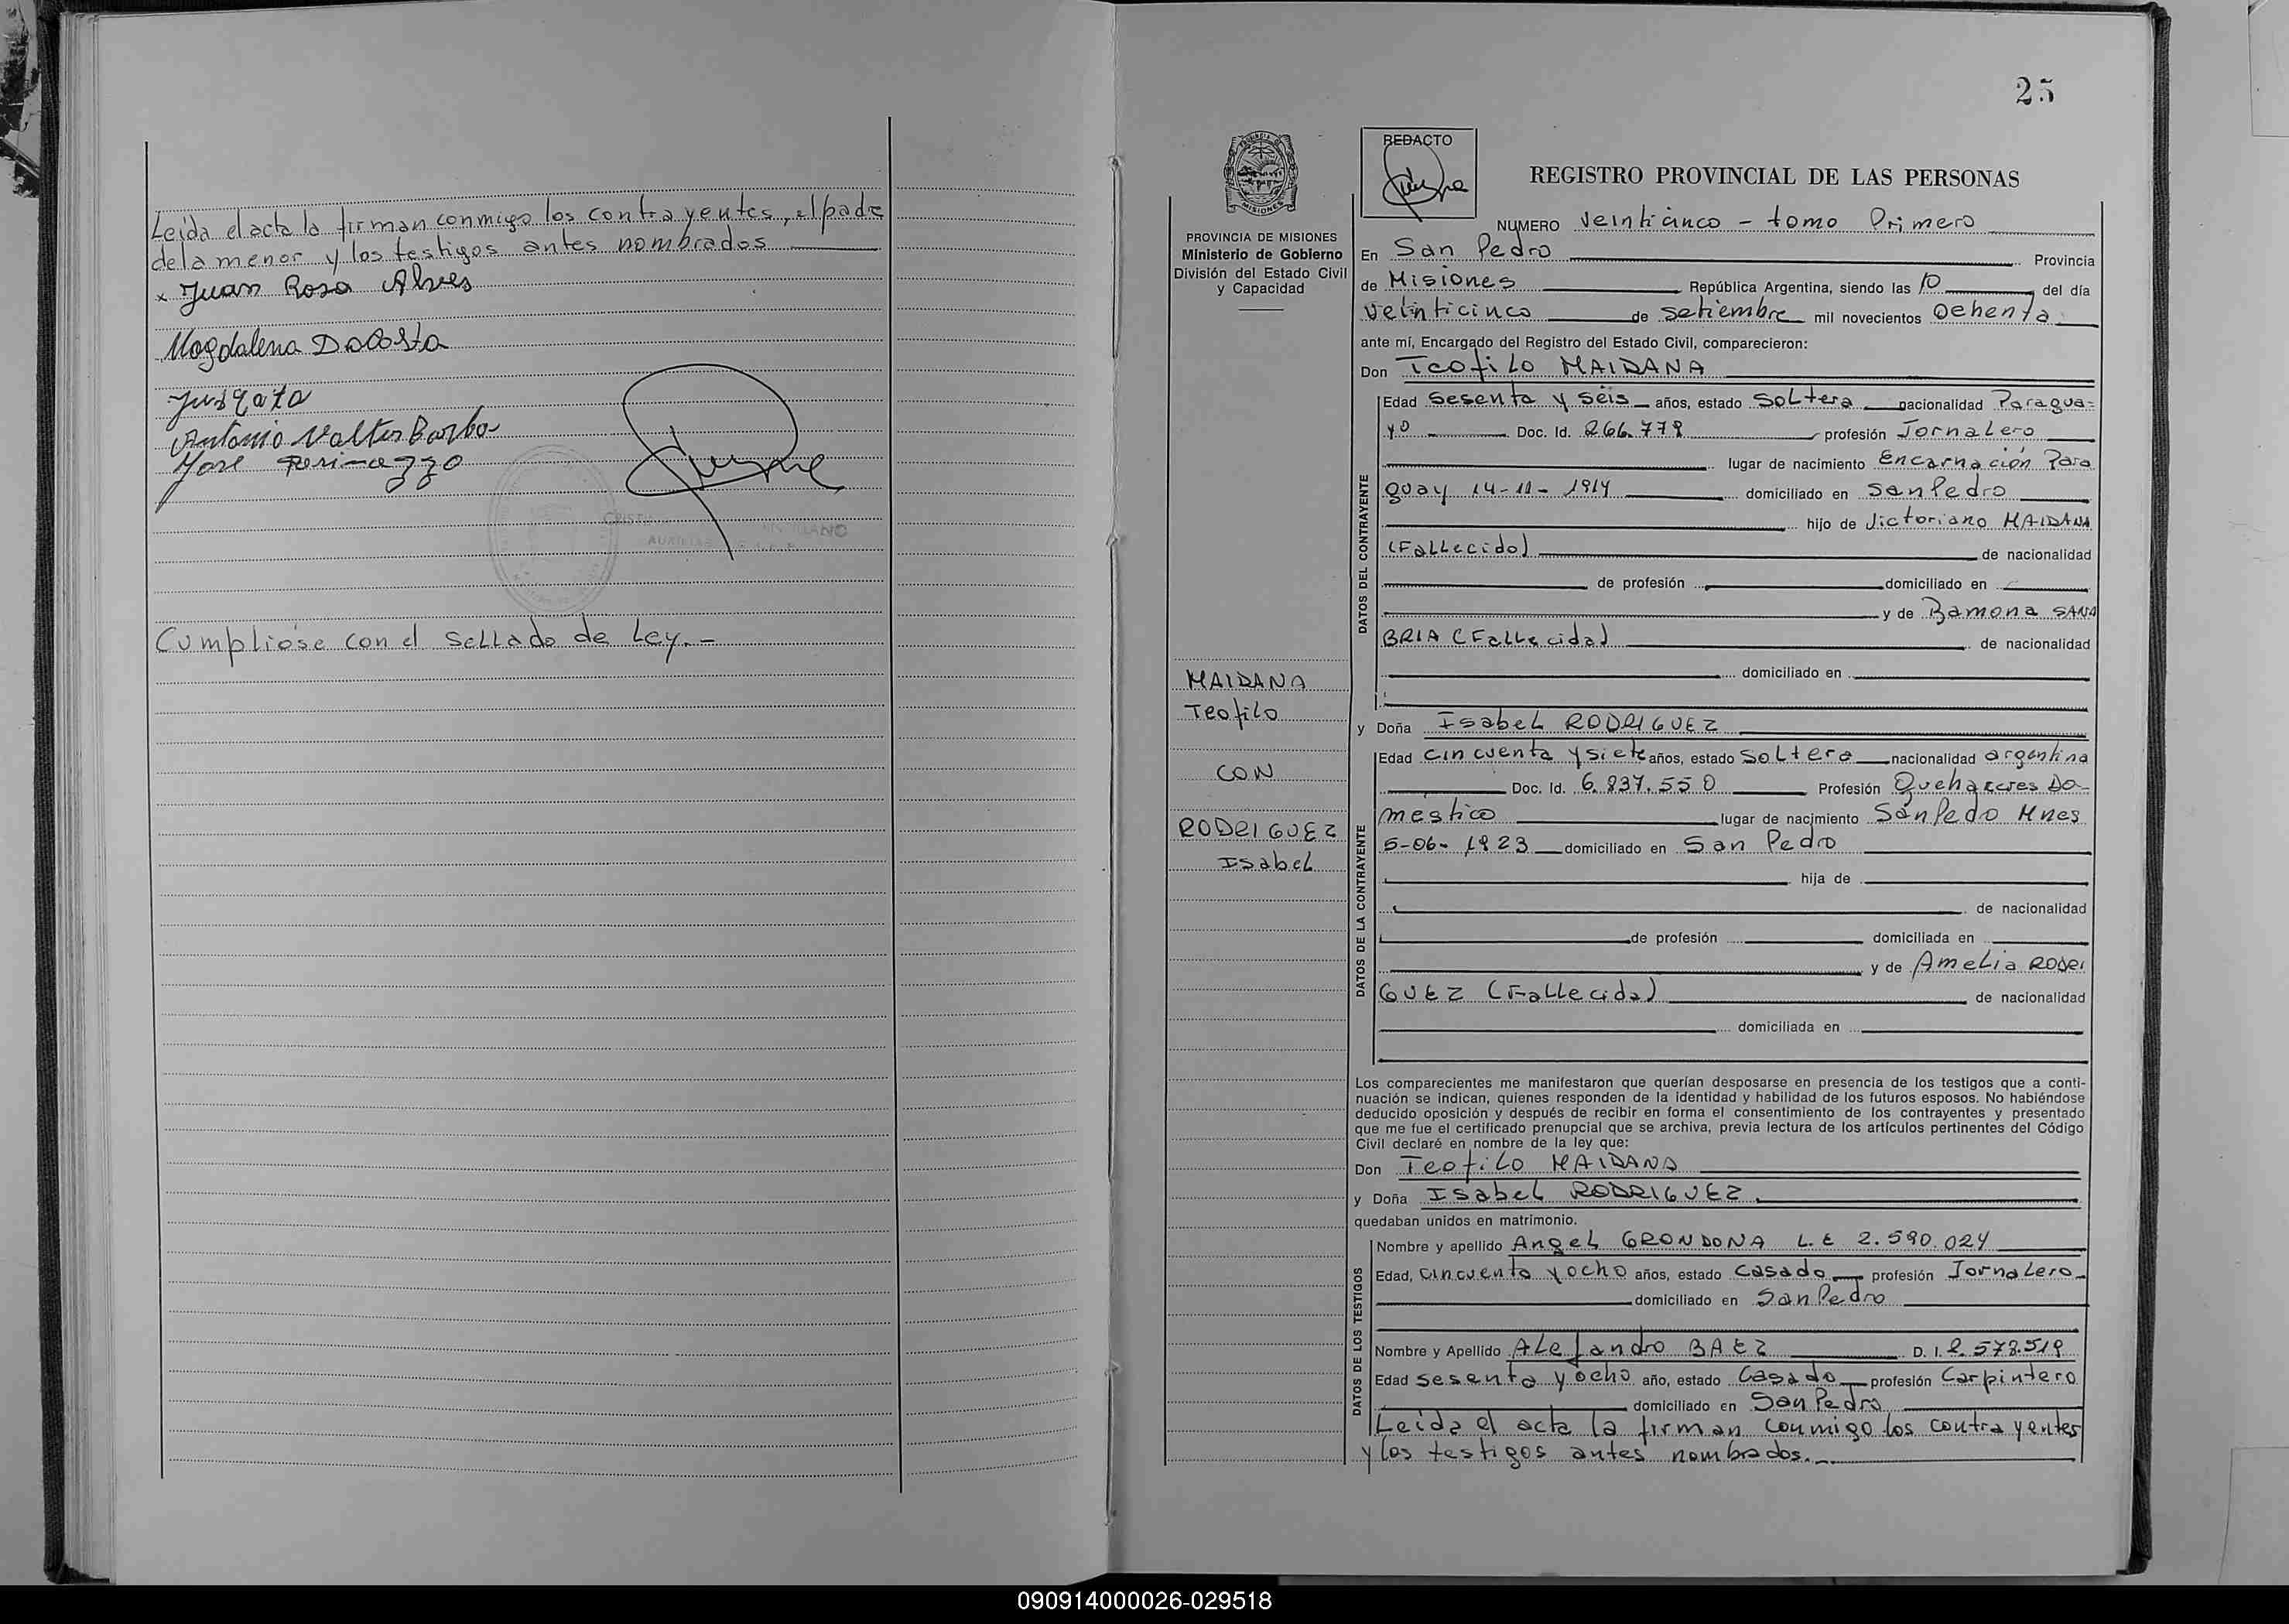 Leída el acta la firman conmigo los contrayentes, el padre
de la menor y los testigos antes nombrados
x Juan Rosa Alves
Magdalena Dacosta
Antonio Valter Barbo
José Perinazzo
Cumplióse con el sellado de Ley.-
25
REDACTO
REGISTRO PROVINCIAL DE LAS PERSONAS
PROVINCIA DE MISIONES
Ministerio de Gobierno
División del Estado Civil
y Capacidad
MAIDANA
Teofilo
CON
RODRIGUEZ
Isabel
NUMERO veinticinco - tomo Primero
En San Pedro Provincia
de Misiones República Argentina, siendo las 10 del día
veinticinco de setiembre mil novecientos ochenta
ante mí, Encargado del Registro del Estado Civil, comparecieron:
Don Teofilo MAIDANA
DATOS DEL CONTRAYENTE
Edad sesenta y seis años, estado soltera nacionalidad Paragua=
yo Doc. Id. 266.778 profesión Jornalero
lugar de nacimiento Encarnación Para
guay 14-11-1914 domiciliado en San Pedro
hijo de Victoriano MAIDANA
(Fallecido) de nacionalidad
de profesión domiciliado en
y de Ramona SANA
BRIA (Fallecida) de nacionalidad
domiciliado en
y Doña Isabel RODRIGUEZ
DATOS DE LA CONTRAYENTE
Edad cincuenta y siete años, estado soltera nacionalidad argentina
Doc. Id. 6.837.550 Profesión Quehaceres Do-
mestico lugar de nacimiento San Pedo Mnes
5-06-1923 domiciliado en San Pedro
hija de
de nacionalidad
de profesión domiciliada en
y de Amelia RODRI
GUEZ (Fallecida) de nacionalidad
domiciliada en
Los comparecientes me manifestaron que querían desposarse en presencia de los testigos que a conti-
nuación se indican, quienes responden de la identidad y habilidad de los futuros esposos. No habiéndose
deducido oposición y después de recibir en forma el consentimiento de los contrayentes y presentado
que me fue el certificado prenupcial que se archiva, previa lectura de los artículos pertinentes del Código
Civil declaré en nombre de la ley que:
Don Teofilo MAIDANA
y Doña Isabel RODRIGUEZ
quedaban unidos en matrimonio.
DATOS DE LOS TESTIGOS
Nombre y apellido Angel GRONDONA L.E 2.590.024
Edad, cincuenta y ocho años, estado casado profesión Jornalero
domiciliado en San Pedro
Nombre y Apellido Alejandro BAEZ D. I. 2.578.518
Edad sesenta y ocho año, estado casado profesión Carpintero
domiciliado en San Pedro
Leida el acta la firman conmigo los contrayentes
y los testigos antes nombrados.-
090914000026-029518